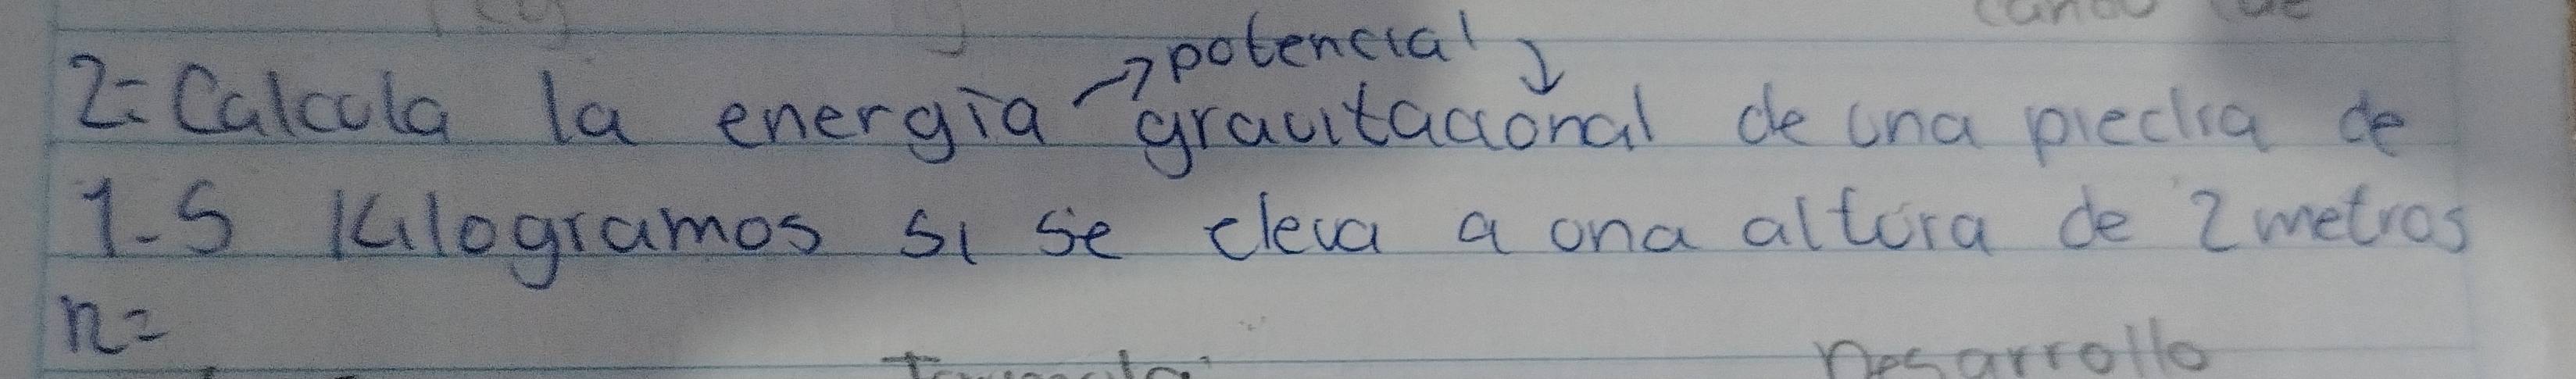 potencial
2=Calcula la energía gravitacional de una piedra de
1.5 Kilogramos si se eleva a una altura de 2 metros
n=
Desarrollo